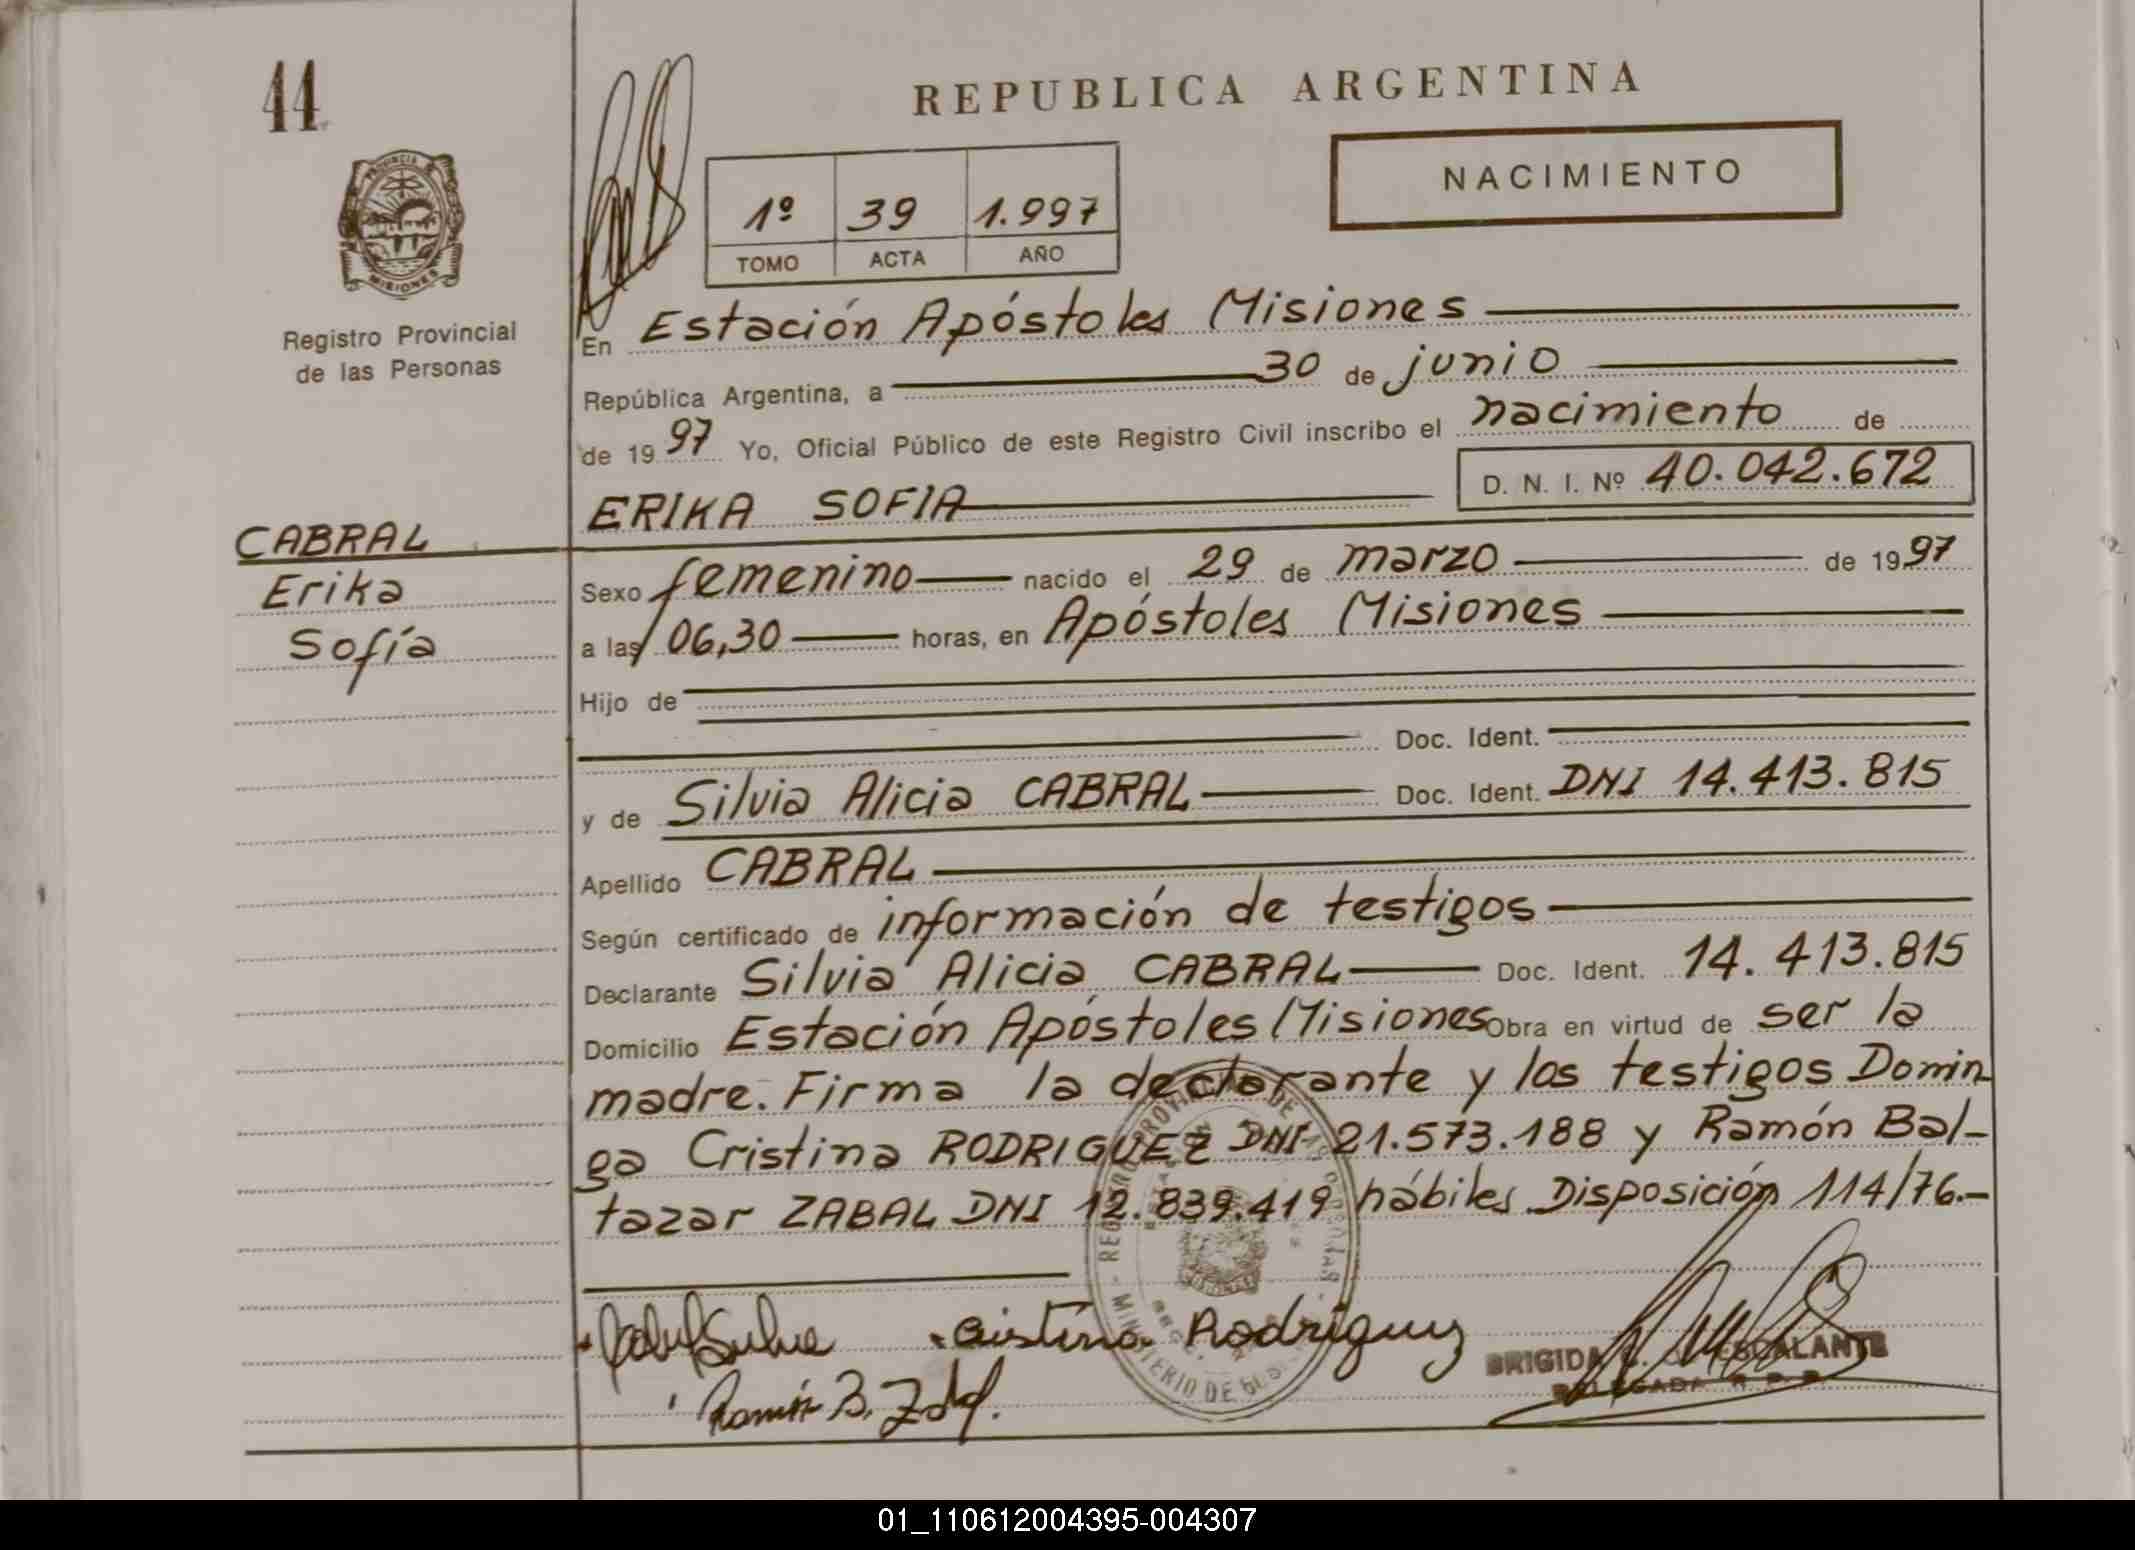 44
REPUBLICA ARGENTINA
NACIMIENTO
PROVINCIA
MISIONES
Registro Provincial
de las Personas
1º 39 1.997
TOMO ACTA AÑO
En Estación Apóstoles Misiones
República Argentina, a 30 de junio
de 1997 Yo, Oficial Público de este Registro Civil inscribo el nacimiento de
D. N. I. Nº 40.042.672
ERIKA SOFIA
CABRAL
Erika
Sofía
Sexo femenino nacido el 29 de marzo de 1997
a las 06,30 horas, en Apóstoles Misiones
Hijo de
Doc. Ident.
y de Silvia Alicia CABRAL Doc. Ident. DNI 14.413.815
Apellido CABRAL
Según certificado de información de testigos
Declarante Silvia Alicia CABRAL Doc. Ident. 14.413.815
Domicilio Estación Apóstoles Misiones Obra en virtud de ser la
madre. Firma la declarante y los testigos Domin-
ga Cristina RODRIGUEZ DNI 21.573.188 y Ramón Bal-
tazar ZABAL DNI 12.839.419 hábiles. Disposición 114/76.-
Cristina Rodriguez
Ramón B. Zabal.
BRIGIDA ESCALANTE
DELEGADA R. P. P.
REGISTRO PROVINCIAL DE LAS PERSONAS
MINISTERIO DE
01_110612004395-004307